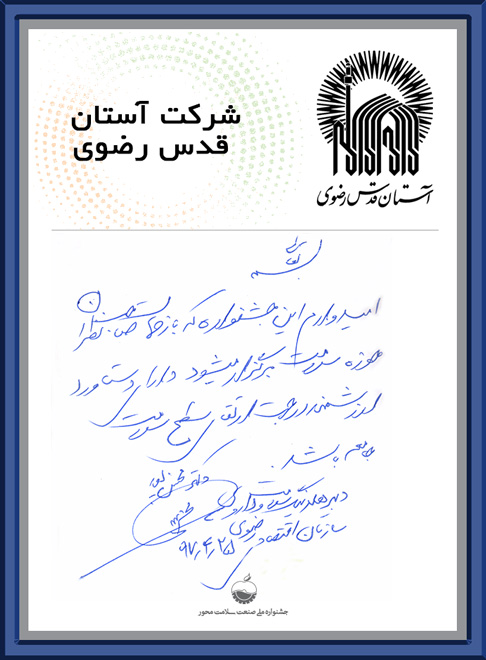 شرکت آستان
قدس رضوی
آستان قدس رضوی
بسمه تعالی
امیدوارم این جشنواره که با زحمات
حوزه سلامت برگزار میشود دارای دستاورد
ارزشمند در جهت ارتقای سطح سلامت
جامعه باشد.
دکتر
دبیر هلدینگ سلامت و دارویی
سازمان اقتصادی رضوی
۹۷,۴,۲۵
جشنواره ملی صنعت سلامت محور